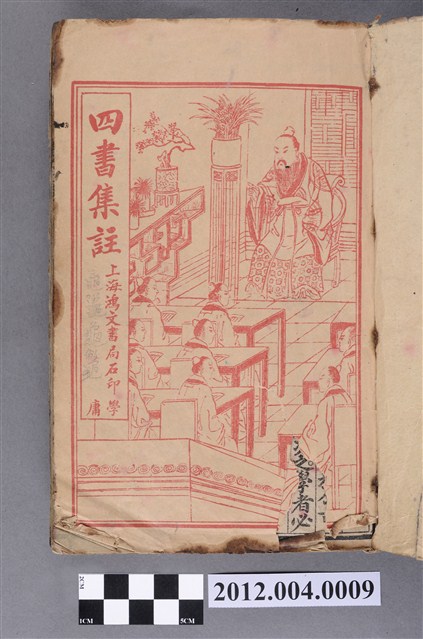 四書集註
上海鴻文書局石印
學
庸
之學者必
2CM
1CM
5CM
2012.004.0009